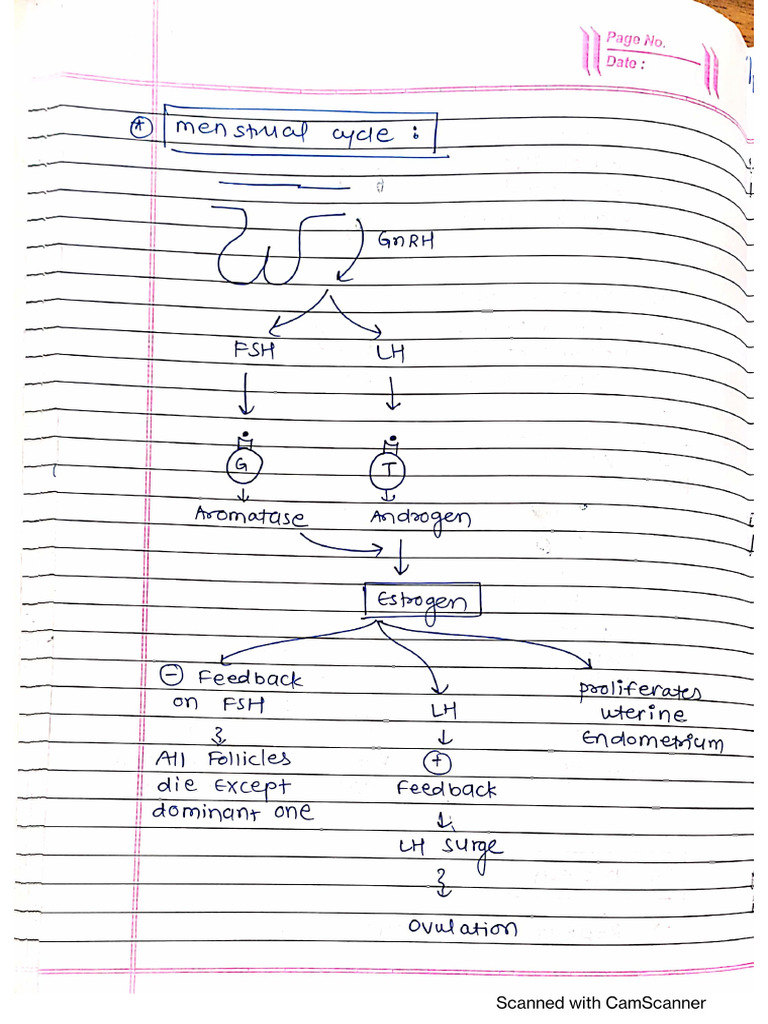 Page No.
Date :
+ menstrual cycle :
GnRH
FSH LH
G T
Aromatase Androgen
Estrogen
- Feedback
on FSH
All Follicles
die except
dominant one
LH
+
Feedback
LH surge
Ovulation
proliferates
uterine
Endometrium
Scanned with CamScanner